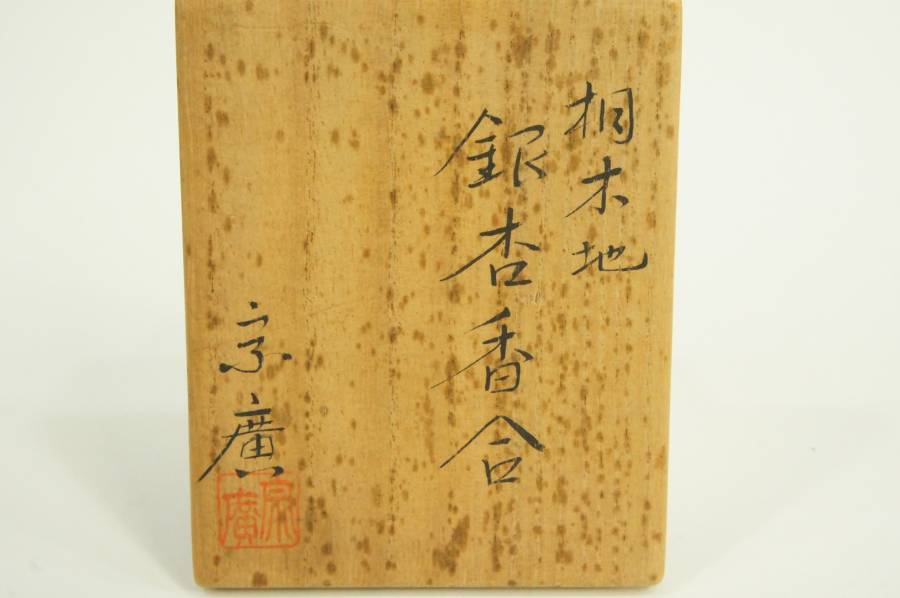 桐木地
銀杏香合
宗廣
宗廣